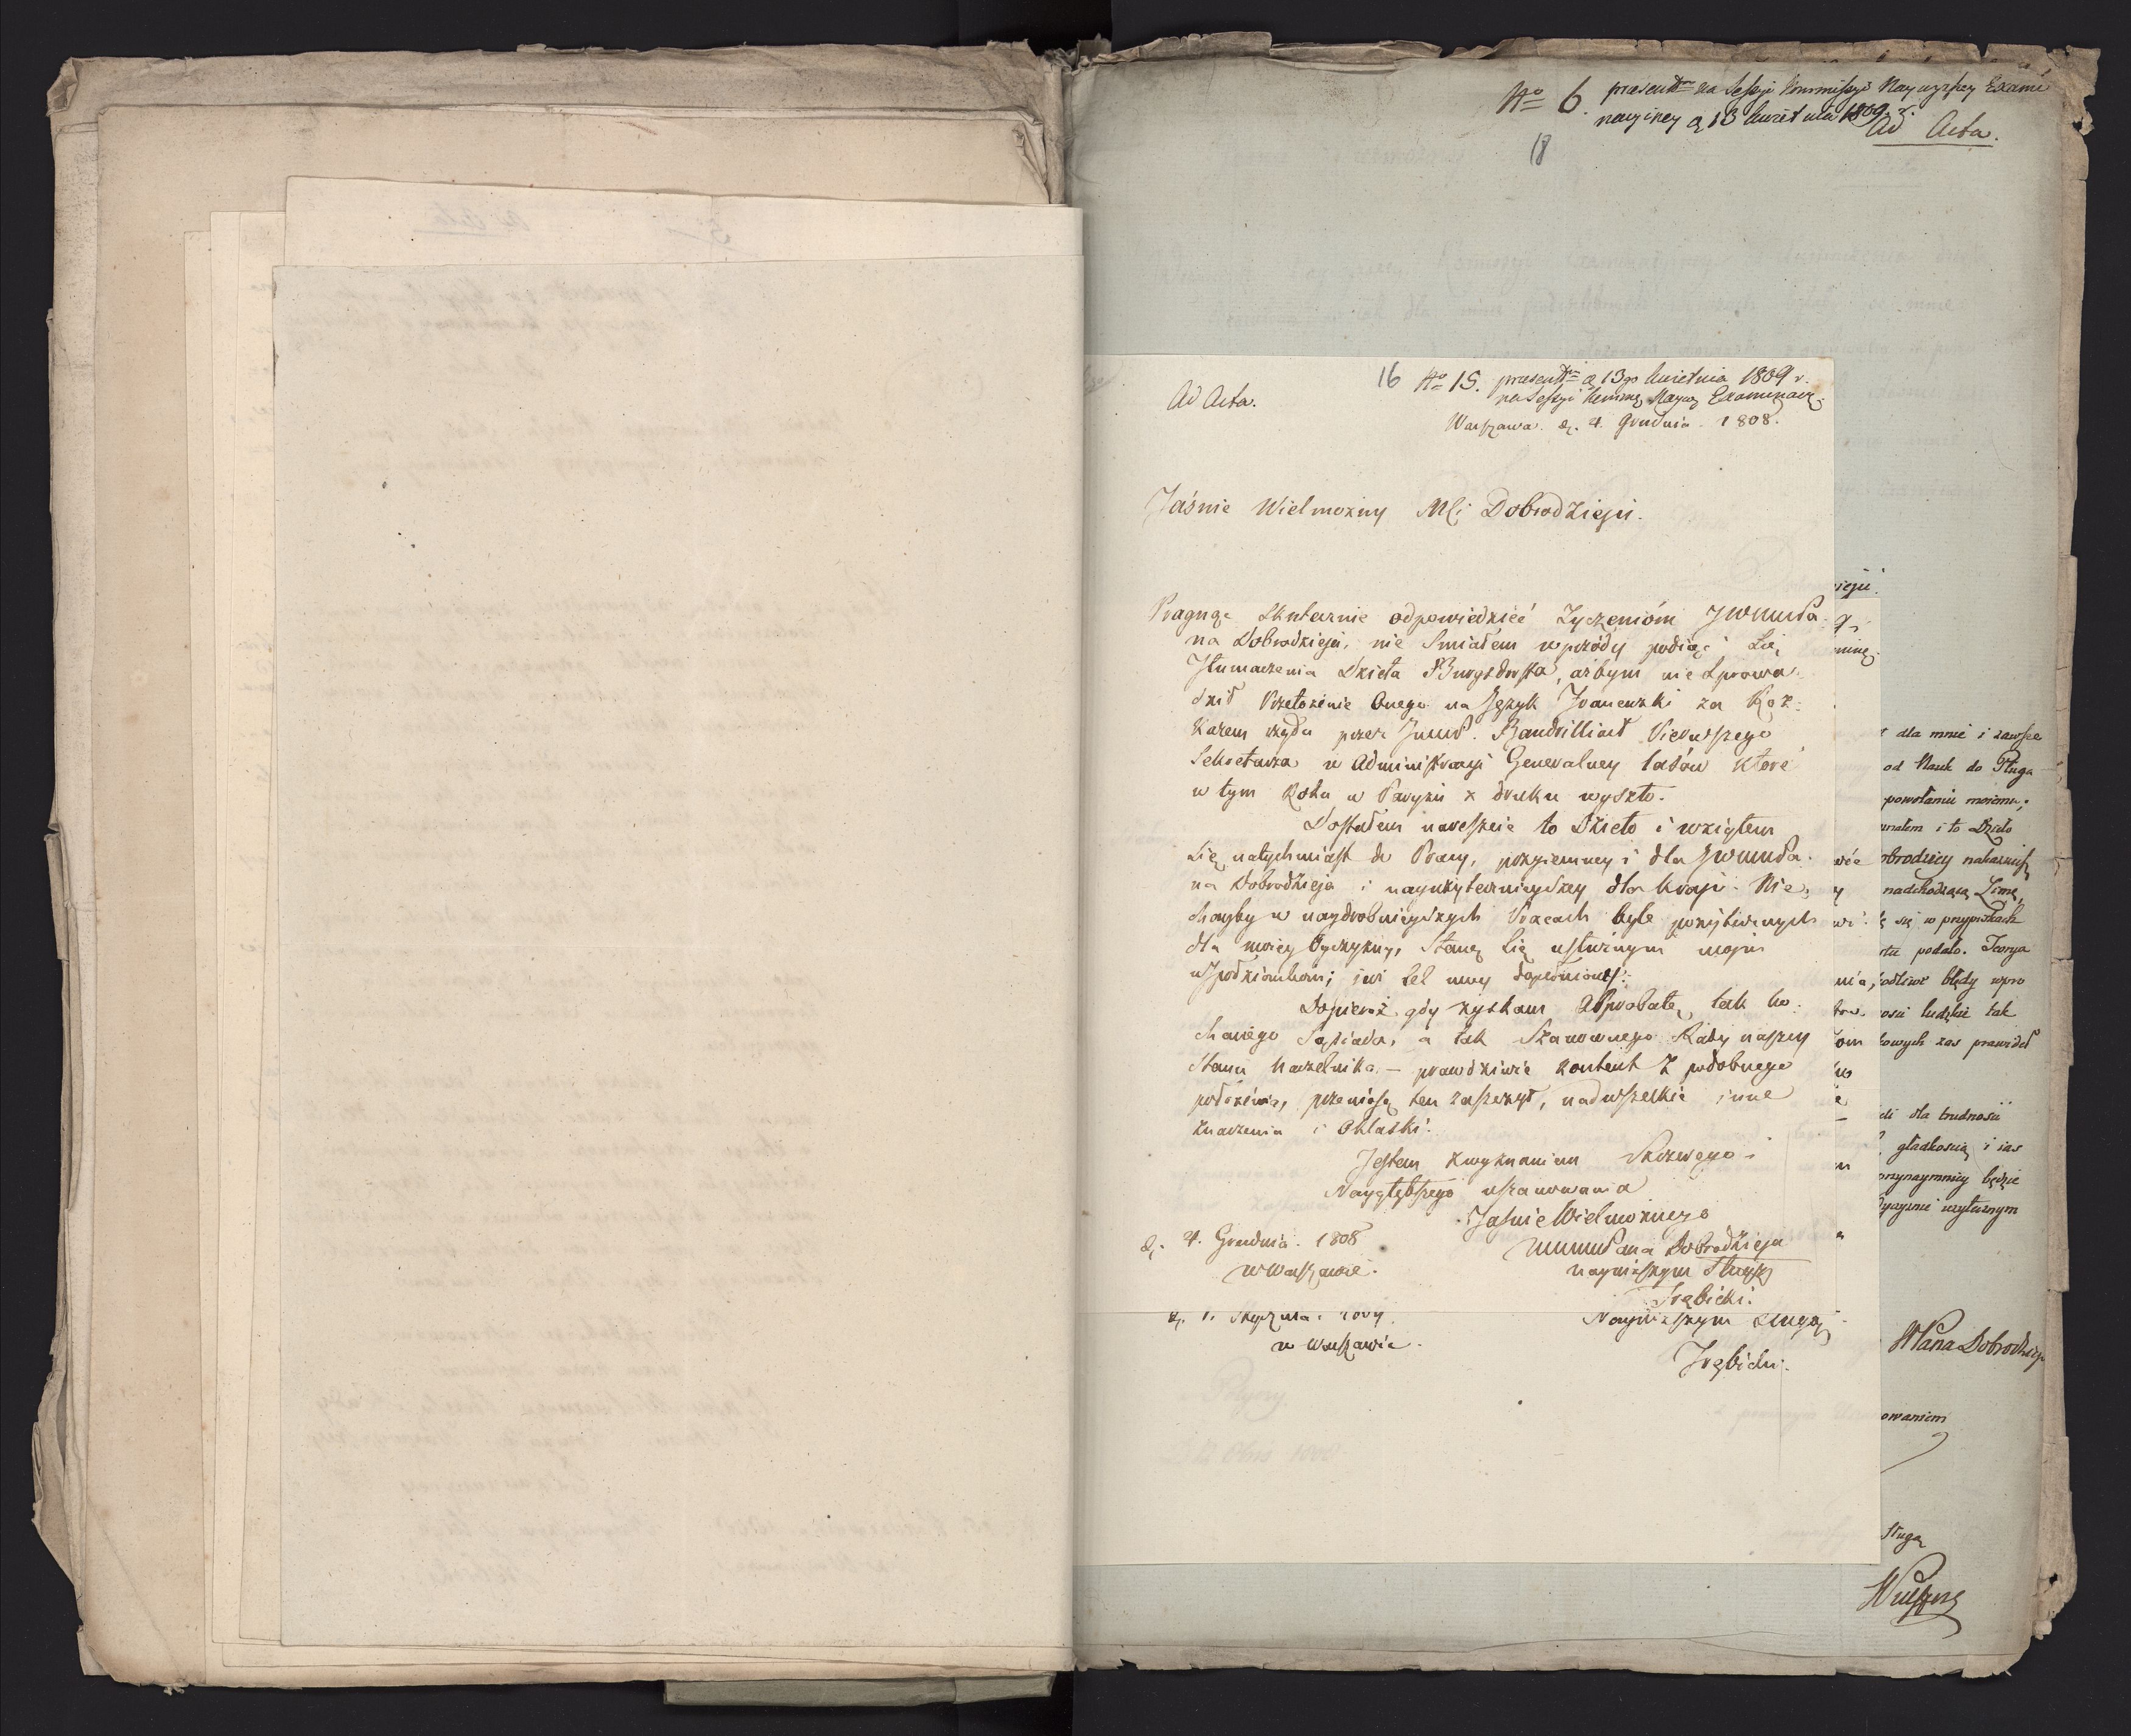 No 6. praesentm na Sessyi Kommissyi Naywyższey Exami
nacyiney d. 13 kwietnia 1809 r.
Ad Acta.
18
16 No 15. praesentm d. 13go kwietnia 1809 r.
na Sessyi Kommis. Naywy. Examinacy.
Ad Acta.
Warszawa. d. 4. Grudnia. 1808.
Jaśnie Wielmożny Mci Dobrodzieju.
Pragnąc skutecznie odpowiedzieć życzenióm JWWMPa
na Dobrodzieja, nie śmiałem wprzódy podiąć się
tłumaczenia Dzieła Burgsdorffa, ażbym nie sprowa
dził Przełożenie Onego na Język Francuzki za Roz:
kazem rządu przez Jmmć. Baudrilliart Pierwszego
Sekretarza w Administracyi Generalney lasów które
w tym Roku w Paryżu z druku wyszło.
Dostałem nareszcie to Dzieło i wziąłem
się natychmiast do Pracy, przyiemney i dla JWWMPa.
na Dobrodzieja i nayużytecznieyszey dla kraju. Nie
chayby w naydrobnieyszych Pracach byle pożytecznych
dla moiey Oyczyzny, stanę się użytecznym moim
wspołziomkom; iuż cel móy dopełniony.
Dopieroż gdy zyskam Approbatę, tak ko:
chanego Sąsiada, a tak Szanownego Rady naszey
Stanu Naczelnika. — prawdziwie kontent z podobnego
położenia, przeniosę ten zaszczyt, nad wszelkie inne
znaczenia i Oklaski.
Jestem z wyznaniem Szczerego i
Naygłębszego uszanowania
Jaśnie Wielmożnego
WMMPana Dobrodzieja
nayniższym Sługą
Trębicki.
d. 4. Grudnia. 1808
w Warszawie.
d. 1. Stycznia. 1809.
w Warszawie.
Nayniższym sługą
Trębicki.
dla mnie i zawsze
od Nauk do Pługa
powołaniu moiemu;
i to Dzieło
nadchodzącą Zimę,
się w przypiskach
podało. Teorya
błędy wpro
ludzkie tak
zas prawideł
dla trudności
gładkością i ias
przynaymniey będzie
użytecznym
WPana Dobrodzieja
owaniem
sługą